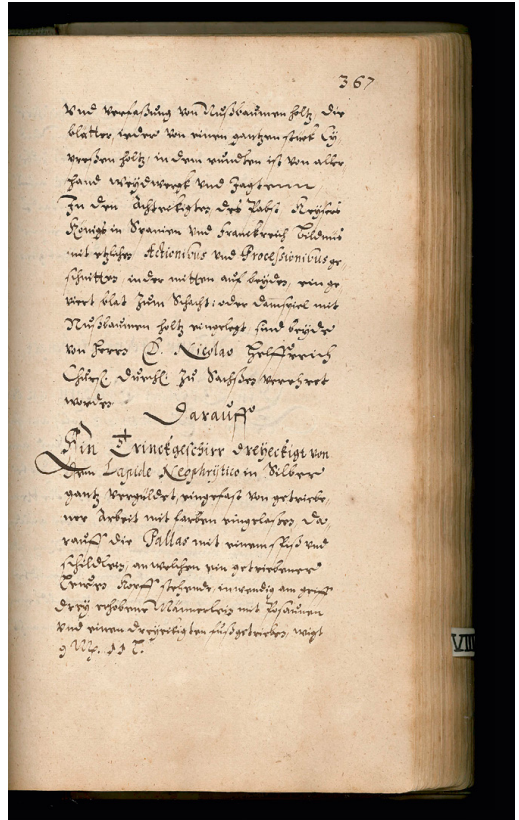 367
vnd verfaßung von Nußbaumen holtz, die
blätter, ieder von einen gantzen stück Cy,
preßen holtz, in dem rundten ist von aller
hand Weydwergk vnd Jagtenn,
In den Achteckigten des Pabst Keysers
Königs in Spanien vnd Franckreich bildnus
mit etzlichen Actionibus vnd Processionibus ge,
schnitten, in der mitten auf beyden, ein ge
viert blat zum Schacht: oder damspiel mit
Nußbaumen holtz eingelegt, sind beyde
von herrn D. Nicolao Helffreich
Churf. Durchl. zu Sachßen verehret
worden
Darauff
Ein Trinckgeschirr dreyeckigt von
dem Lapide Neophrijtico in Silber
gantz verguldet, eingefast von getriebe,
ner Arbeit mit farben eingelaßen, da,
rauff die Pallas mit einem spiß vnd
schildlein, an welchen ein getriebener
Lewen Kopff stehende, inwendig am
drey erhobene Männerlein mit Posaunen
vnd einen dreyeckigten fuß getrieben, wigt
9 Mk. 11 L.
VIII